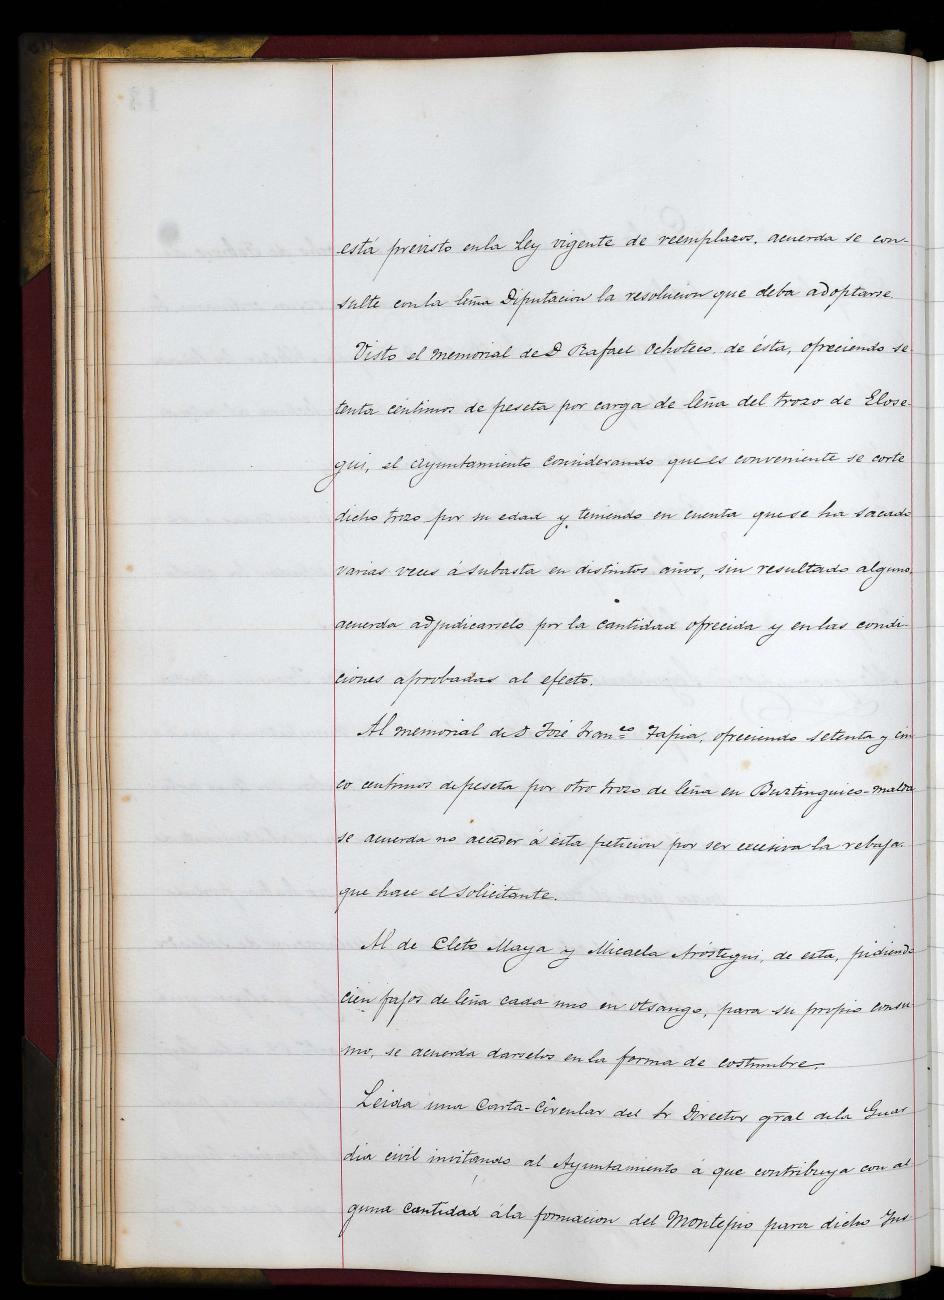 está previsto en la Ley vigente de reemplazos, acuerda se con-
sulte con la Exma Diputacion la resolucion que deba adoptarse.
Visto el memorial de D Rafael Ochoteco, de ésta, ofreciendo se-
tenta céntimos de peseta por carga de leña del trozo de Elose-
gui, el Ayuntamiento considerando que es conveniente se corte
dicho trozo por su edad y teniendo en cuenta que se ha sacado
varias veces á subasta en distintos años, sin resultado alguno,
acuerda adjudicarselo por la cantidad ofrecida y en las condi-
ciones aprobadas al efecto.
Al memorial de D José Franco Tapia, ofreciendo setenta y cin
co centimos de peseta por otro trozo de leña en Buztinguico-malda
se acuerda no acceder á esta peticion por ser excesiva la rebaja
que hace el solicitante.
Al de Cleto Maya y Micaela Aróstegui, de esta, pidiendo
cien fajos de leña cada uno en Otsango, para su propio consu-
mo, se acuerda darselos en la forma de costumbre.
Leida una Carta-Circular del Sr Director gral de la Guar
dia civil invitando al Ayuntamiento á que contribuya con al
guna cantidad á la formacion del Montepio para dicho Ins-